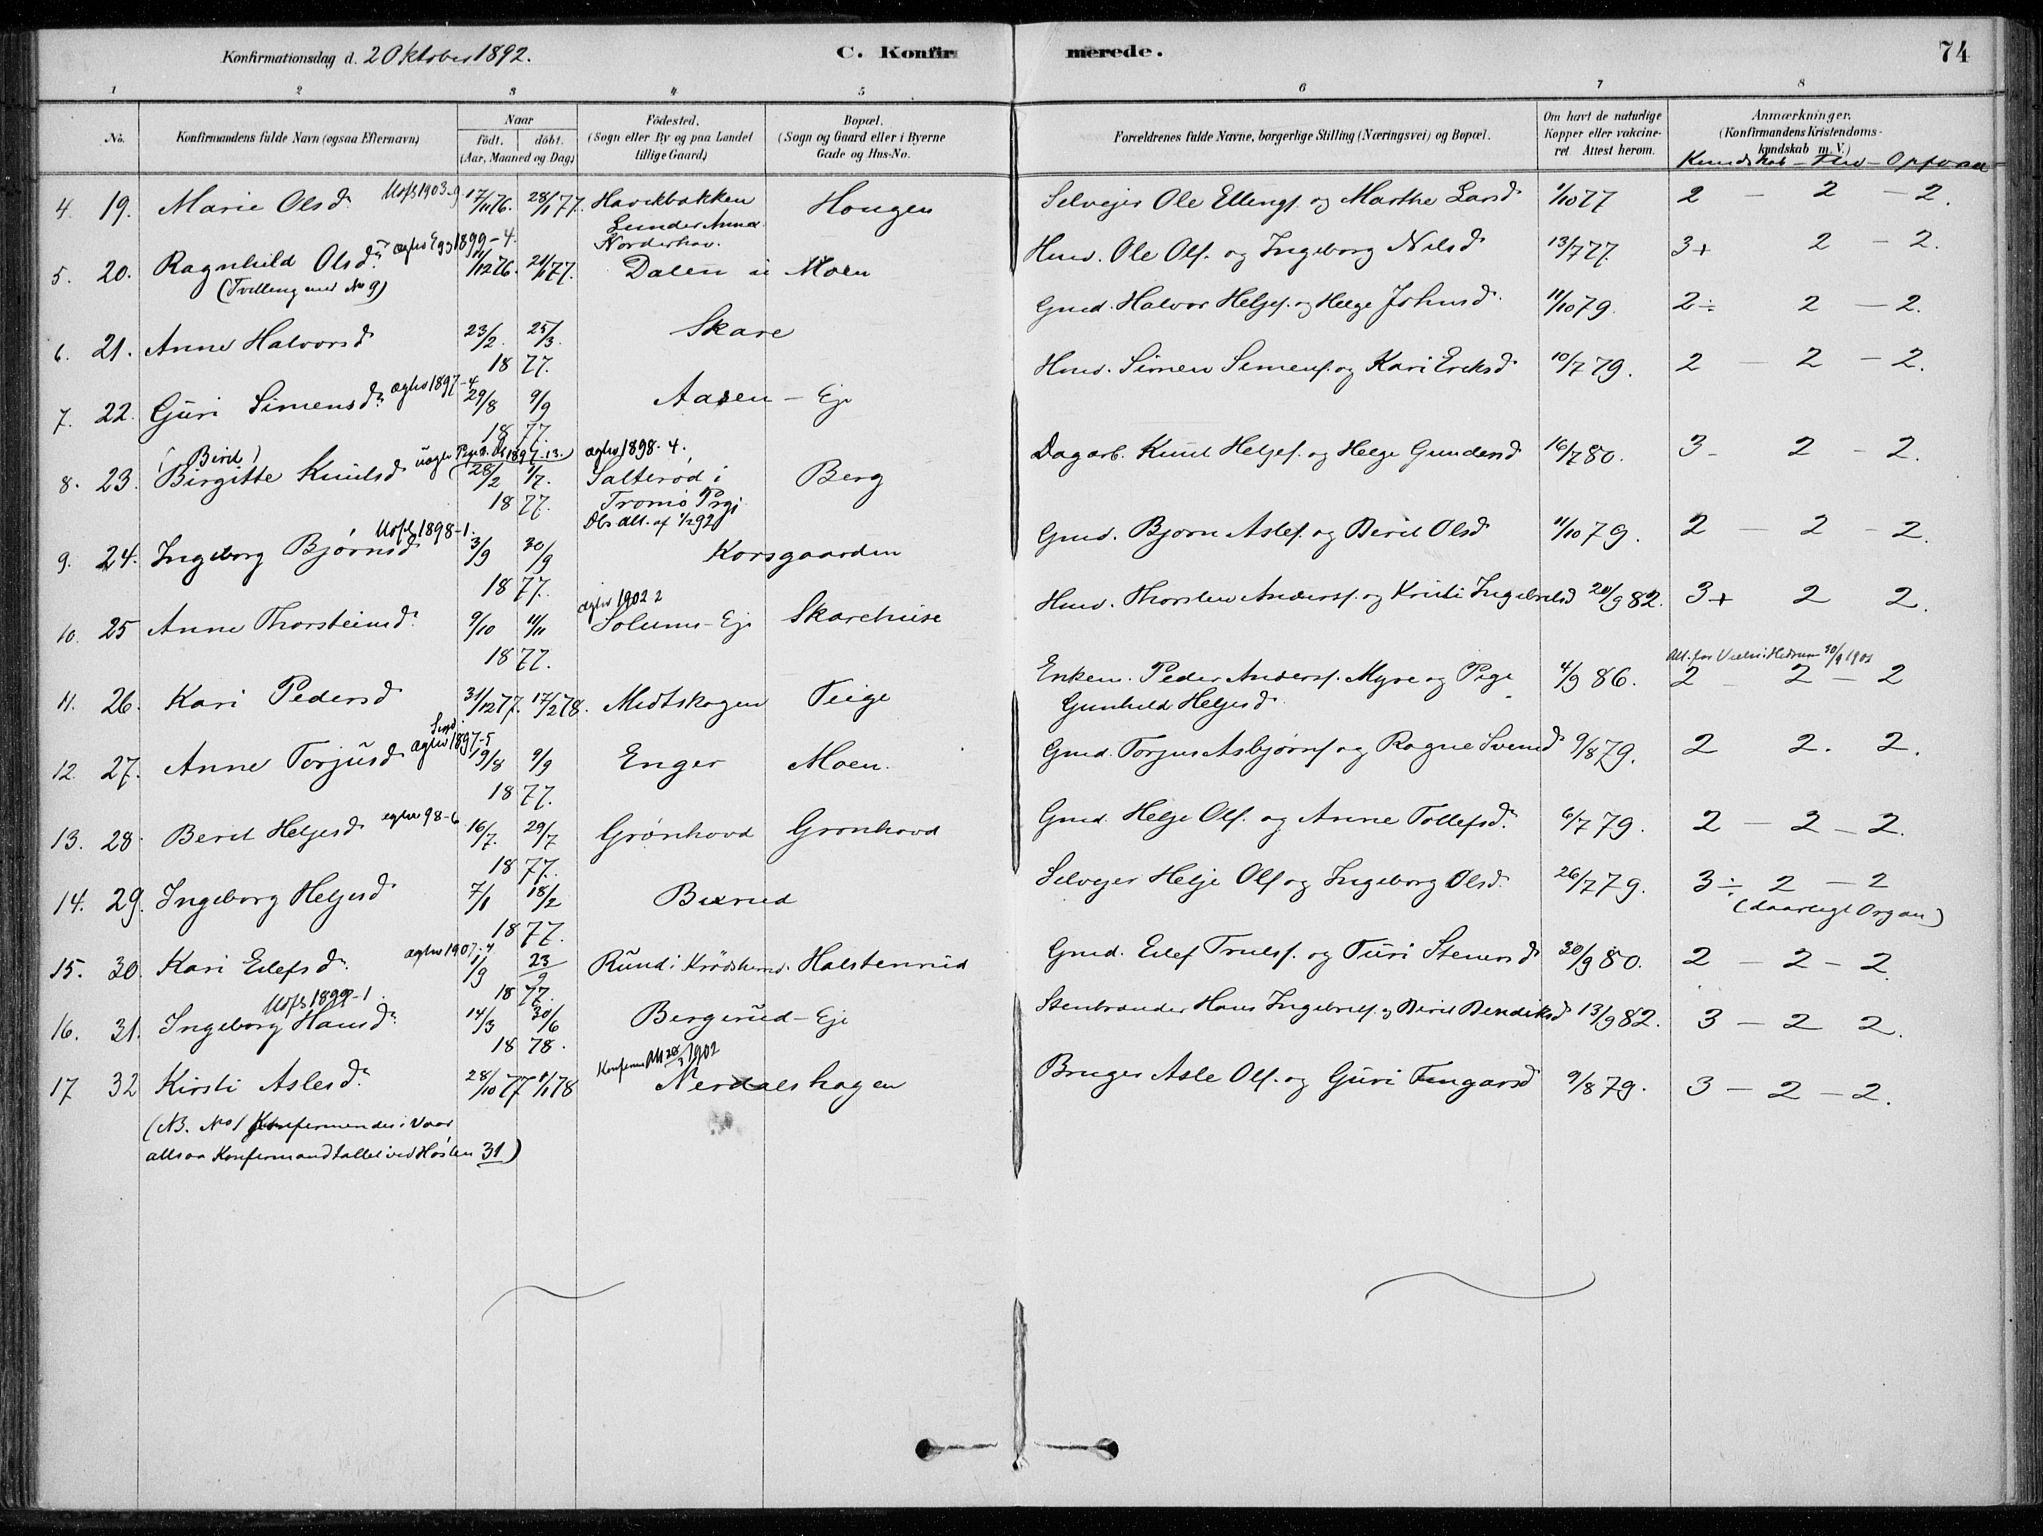 Konfirmationsdag d. 2 Oktober 1892.
C. Konfir
merede.
74
1 2 3 4 5 6 7 8
No. Konfirmandens fulde Navn (ogsaa Efternavn) Naar födt. döbt. (Aar, Maaned og Dag) Födested. (Sogn eller By og paa Landet tillige Gaard) Bopæl. (Sogn og Gaard eller i Byerne Gade og Hus-No. Forældrenes fulde Navne, borgerlige Stilling (Næringsvei) og Bopæl. Om havt de naturlige Kopper eller vakcineret Attest herom. Anmærkninger. (Konfirmandens Kristendomskundskab m. V.)
Kundskab – Flid – Opførsel
4. 19. Marie Olsd. Uofb 1903-9 17/11 76. 28/1 77. Havikbakken Lunder Annex Norderhov. Hougen Selveier Ole Ellengs. og Marthe Larsd 1/10 77 2 – 2 – 2.
5. 20. Ragnhild Olsd. ægtev 1899-4. (Tvilling med No 9) 11/12 76. 21/1 77. Dalen u Moen Husm. Ole Ols. og Ingeborg Nilsd 13/7 77. 3+ 2 – 2.
6. 21. Anne Halvorsd 23/2. 25/3. 1877. Skare Gmd. Halvor Heljes. og Helge Johnsd. 11/10 79. 2÷ 2 – 2.
7. 22. Guri Simensd. ægtev 1897-4 29/8 9/9 1877. Aasen – Eje Husm. Simen Simens. og Kari Eriksd 10/7 79. 2 – 2 – 2.
8. 23. (Berit) Birgitte Knudsd 1897.13. ægtev 1898.4. 28/2 1/7. 1877. Salterød i Tromø Prgj. Dbs att. af 1/2 92 Berg Dagarb. Knud Heljes. og Helge Gundersd 16/7 80. 3- 2 – 2.
9. 24. Ingeborg Bjørnsd Uofb 1898-1. 3/9 30/9 1877. Korsgaarden Gmd. Bjørn Asles. og Berit Olsd 11/10 79. 2 – 2 – 2.
10. 25 Anne Thorsteinsd. 9/10 11/11 1877. ægtev 1902 2 Solums-Eje Skarehuse Husm. Thorsten Anderss. og Kristi Ingebretsd 20/9 82. 3+ 2 2.
11. 26. Kari Pedersd 31/12 77. 17/2 78. Midtskogen Teige Enkem. Peder Anderss. Myre og Pige Gunhild Heljesd. 4/9 86. Att. for Vielse i Hedrum 30/9 1901 2 – 2 – 2
12. 27. Anne Torjusd ægtev 1897-5 19/8 9/9 1877. Enger Moen. Gmd. Torjus Asbjørns. og Ragne Svensd 9/8 79. 2 2. 2.
13. 28. Berit Heljesd ægtev 98-6 16/7. 29/7 1877. Grønhovd Grønhovd Gmd. Helje Ols. og Anne Tollefsd. 6/7 79. 2 – 2 – 2.
14. 29. Ingeborg Heljesd 7/1 18/2 1877. Buxrud Selveier Helje Ols og Ingeborg Olsd. 26/7 79. 3÷ 2 – 2 (daarligt Organ)
15. 30. Kari Eilefsd. ægtev 1907.4 1/9 23/9 1877. Rund i Krødsherred. Halstenrud Gmd. Eilef Truls. og Turi Stenersd 30/9 80. 2 – 2 – 2.
16. 31. Ingeborg Hansd. Uofb 1899-1. 14/3 30/6 1878. Bergerud-Eje Stenbrænder Hans Ingebrets. og Berit Bendiksd 13/9 82. 3 – 2 2.
17 32 Kirsti Aslesd. 28/10 77 1/1 78 Konferm Att 28/3 1902 Nerdalshagen Bruger Asle Ols. og Guri Fingarsd 9/8 79. 3 – 2 – 2.
(NB. No 1 Konfermendes i Vaar
altsaa Konfermandtallet ved Høsten 31)